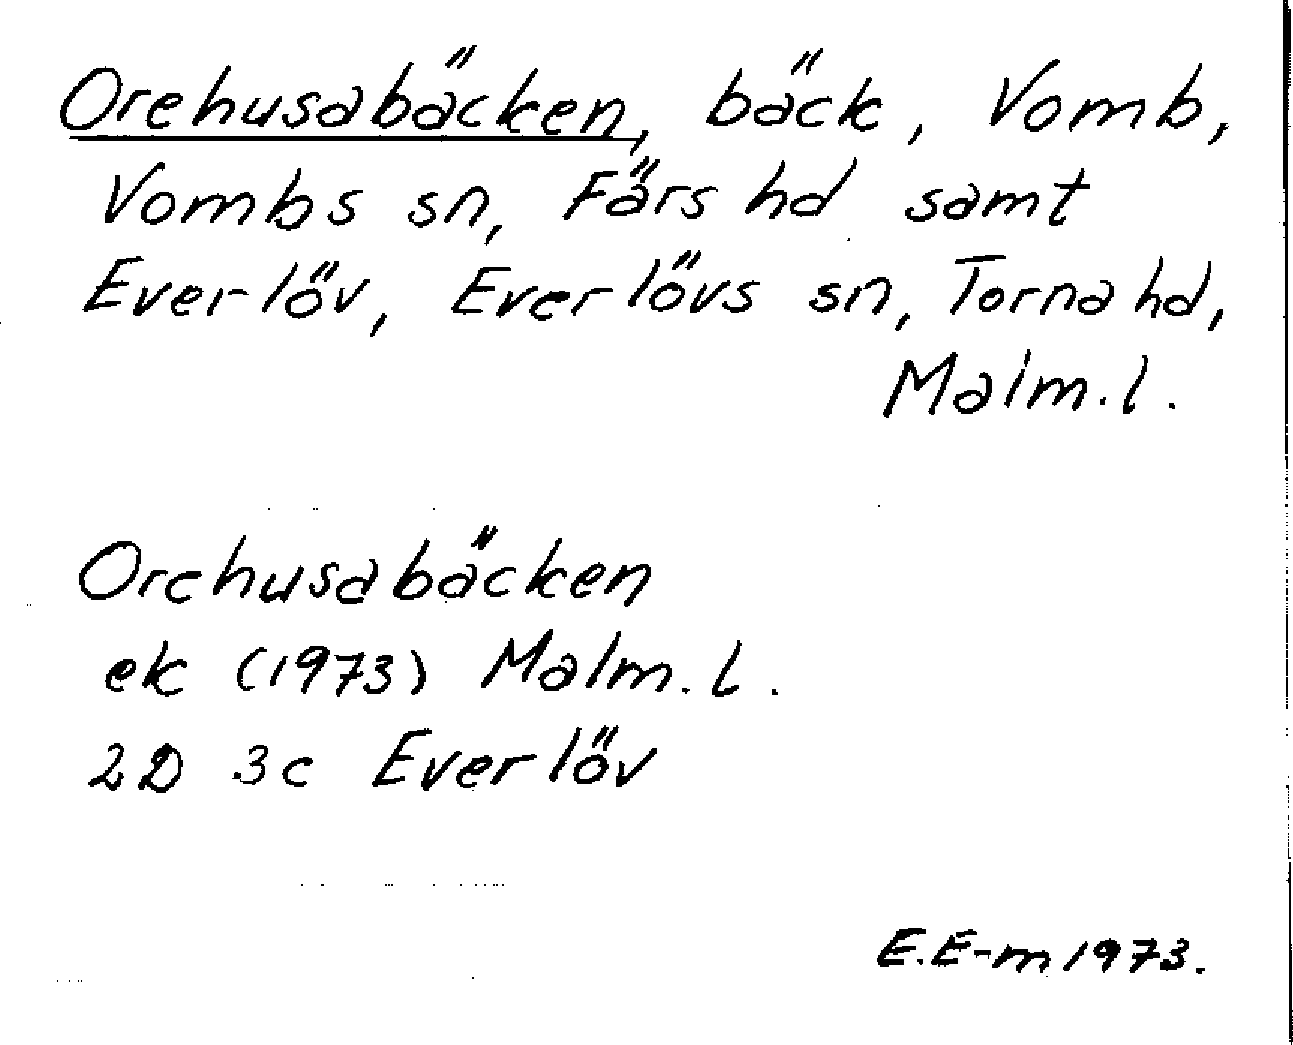 Orehusabäcken, bäck, Vomb,
Vombs sn, Färs hd samt
Everlöv, Everlövs sn, Torna hd,
Malm.l.
Orehusabäcken
ek (1973) Malm.l.
2D 3c Everlöv
E.E-m 1973.